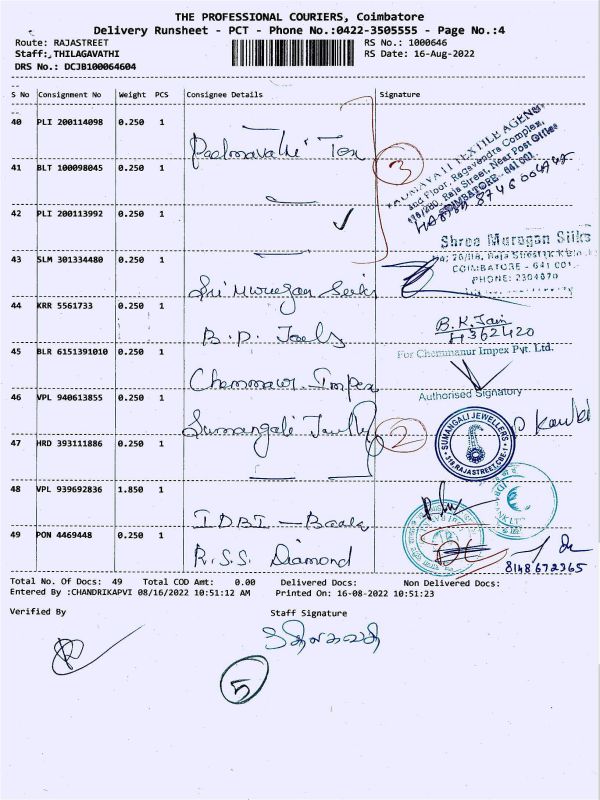 THE PROFESSIONAL COURIERS, Coimbatore
Delivery Runsheet - PCT - Phone No.:0422-3505555 - Page No.:4
Route: RAJASTREET
RS No.: 1000646
Staff: THILAGAVATHI
RS Date: 16-Aug-2022
DRS No.: DCJB100064604
S No Consignment No Weight PCS Consignee Details Signature
40 PLI 200114098 0.250 1
Padmavathi Tex
3
PADMAVATI TEXTILE AGENCY
2nd Floor, Ragavendra Complex,
Raja Street, Near Post Office
COIMBATORE - 641 001
41 BLT 100098045 0.250 1
42 PLI 200113992 0.250 1
43 SLM 301334480 0.250 1
Sri Murugan Silks
Shree Murugan Silks
COIMBATORE - 641 001
PHONE: 2304670
44 KRR 5561733 0.250 1
B.P. Jaels
B.K. Jain
H362420
45 BLR 6151391010 0.250 1
Chemmanur Impex
For Chemmanur Impex Pvt. Ltd.
Authorised Signatory
46 VPL 940613855 0.250 1
Sumangali Jewellry
2
SUMANGALI JEWELLERS
319, RAJA STREET, CBE-1
47 HRD 393111886 0.250 1
48 VPL 939692836 1.850 1
IDBI - Bank
49 PON 4469448 0.250 1
R.S.S. Diamond
8148672365
Total No. Of Docs: 49 Total COD Amt: 0.00 Delivered Docs: Non Delivered Docs:
Entered By :CHANDRIKAPVI 08/16/2022 10:51:12 AM Printed On: 16-08-2022 10:51:23
Verified By
Staff Signature
5